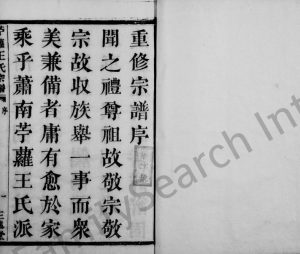 重修宗譜序
聞之禮尊祖故敬宗敬
宗故收族舉一事而衆
美兼備者庸有愈於家
乘乎蕭南苧蘿王氏派
苧蘿王氏宗譜
序
一
FamilySearch Int